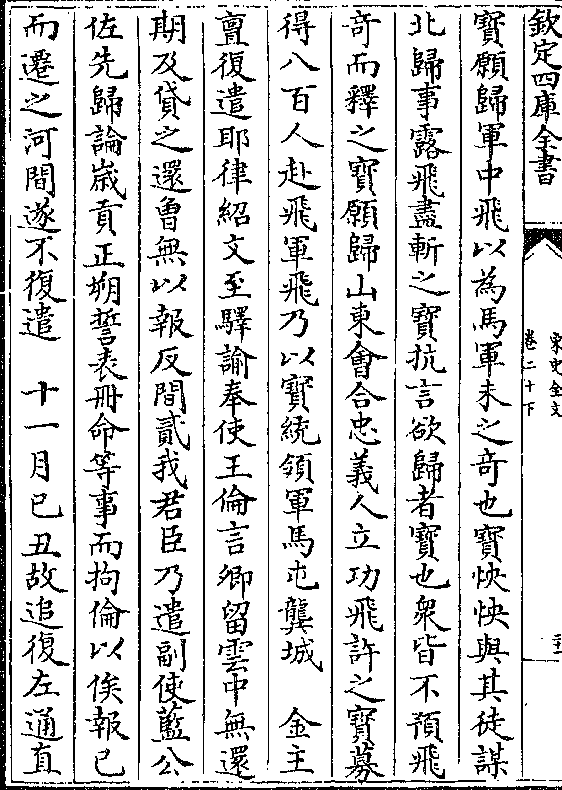 欽定四庫全書
宋史全文
卷二十下
寳願歸軍中飛以為馬軍未之竒也寳怏怏與其徒謀
北歸事露飛盡斬之寳抗言欲歸者寳也衆皆不預飛
竒而釋之寳願歸山東會合忠義人立功飛許之寳募
得八百人赴飛軍飛乃以寳統領軍馬屯龔城　金主
亶復遣耶律紹文至驛諭奉使王倫言卿留雲中無還
期及貸之還曾無以報反間貳我君臣乃遣副使藍公
佐先歸論嵗貢正朔誓表冊命等事而拘倫以俟報已
而遷之河間遂不復遣　十一月已丑故追復左通直